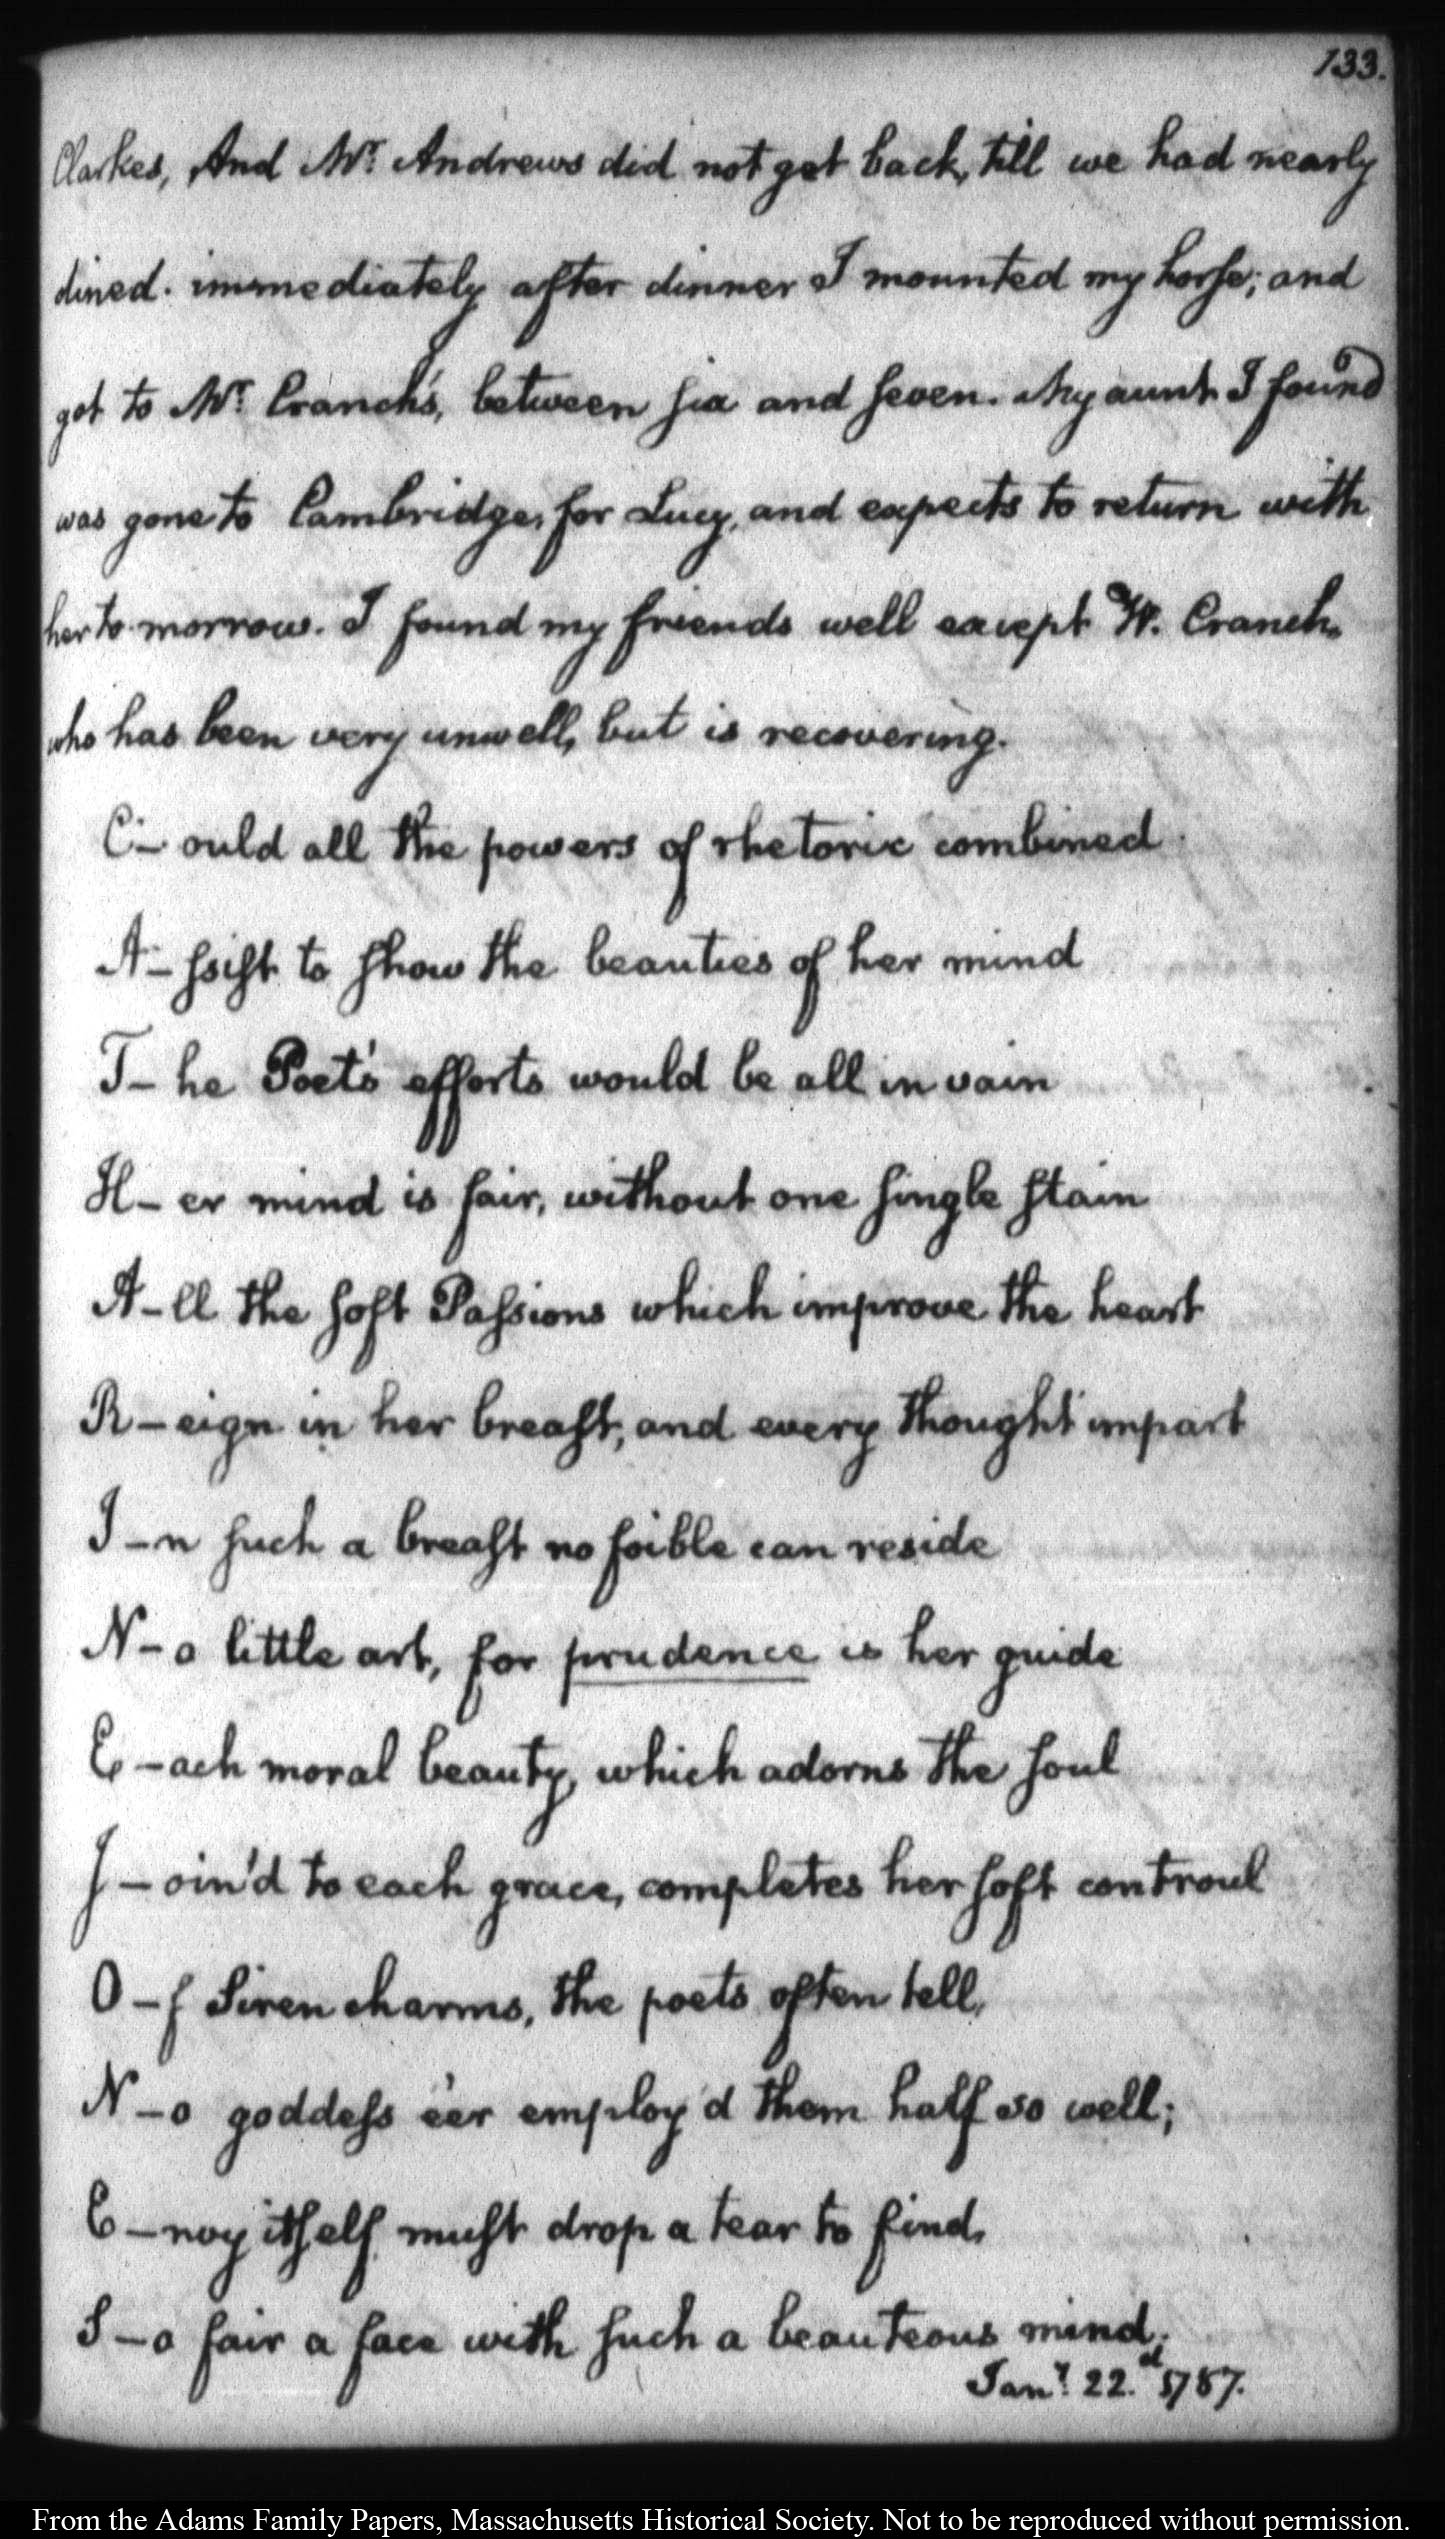 133.
Clarkes, And Mr. Andrews did not get back, till we had nearly
dined. immediately after dinner I mounted my horse; and
got to Mr. Cranch's, between six and seven. My aunt I found
was gone to Cambridge, for Lucy, and expects to return with
her to-morrow. I found my friends well except W. Cranch,
who has been very unwell, but is recovering.
C- ould all the powers of rhetoric combined
A- ssist to show the beauties of her mind
T- he Poet's efforts would be all in vain
H- er mind is fair, without one single stain
A- ll the soft Passions which improve the heart
R- eign in her breast, and every thought impart
I- n such a breast no foible can reside
N- o little art, for prudence is her guide
E- ach moral beauty, which adorns the soul
J- oin'd to each grace, completes her soft controul
O- f Siren charms, the poets often tell,
N- o goddess e'er employ'd them half so well;
E- nvy itself must drop a tear to find,
S- o fair a face with such a beauteous mind.
Jany. 22.d 1787.
From the Adams Family Papers, Massachusetts Historical Society. Not to be reproduced without permission.